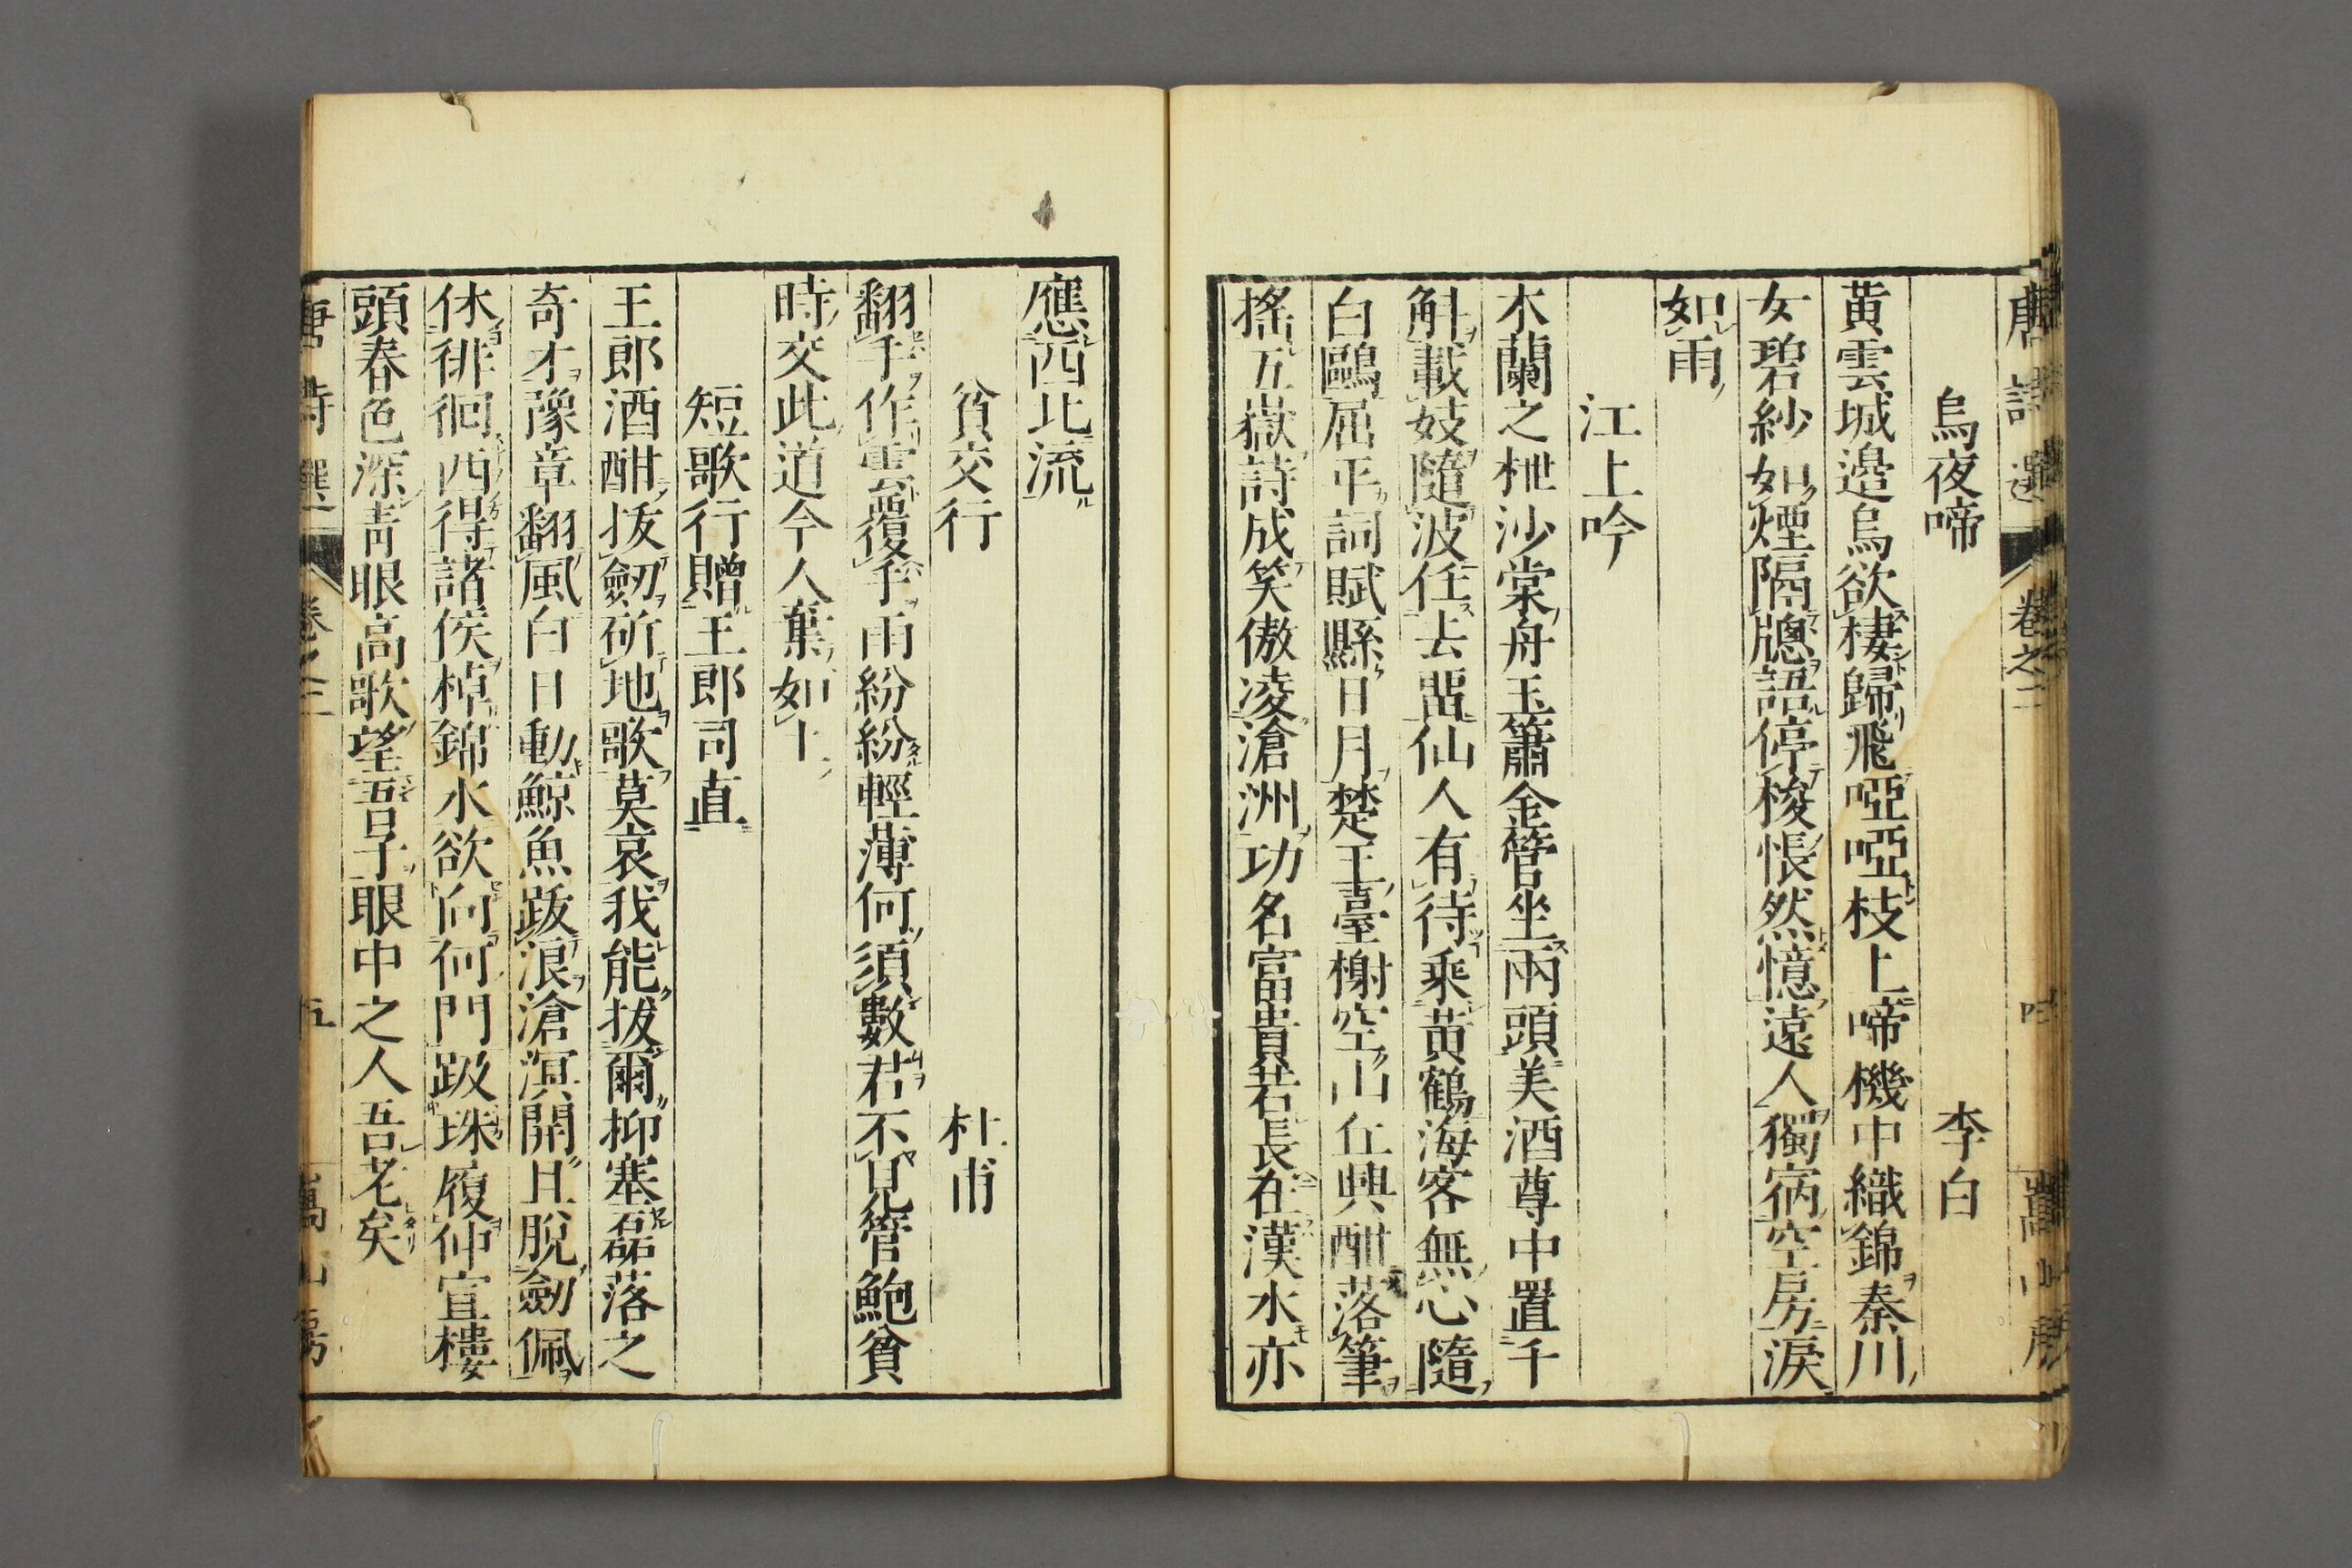 唐詩選 卷之二
烏夜啼 李白
黃雲城邉烏欲棲歸飛啞啞枝上啼機中織錦秦川
女碧紗如煙隔牕語停梭悵然憶遠人獨宿空房淚
如雨
江上吟
木蘭之枻沙棠舟玉簫金管坐兩頭美酒尊中置千
斛載妓隨波任去畱仙人有待乘黃鶴海客無心隨
白鷗屈平詞賦縣日月楚王臺榭空山丘興酣落筆
搖五嶽詩成笑傲凌滄洲功名富貴若長在漢水亦
應西北流
貧交行 杜甫
翻手作雲覆手雨紛紛輕薄何須數君不見管鮑貧
時交此道今人棄如土
短歌行贈王郎司直
王郎酒酣拔劒斫地歌莫哀我能拔爾抑塞磊落之
奇才豫章翻風白日動鯨魚跋浪滄溟開且脫劒佩
休徘徊西得諸侯棹錦水欲向何門跋珠履仲宣樓
頭春色深靑眼高歌望吾子眼中之人吾老矣
唐詩選 卷之二 五 嵩山房